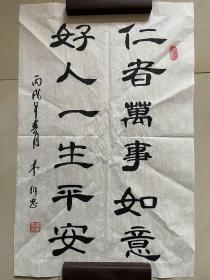 仁者萬事如意
好人一生平安
丙戌年春月 李